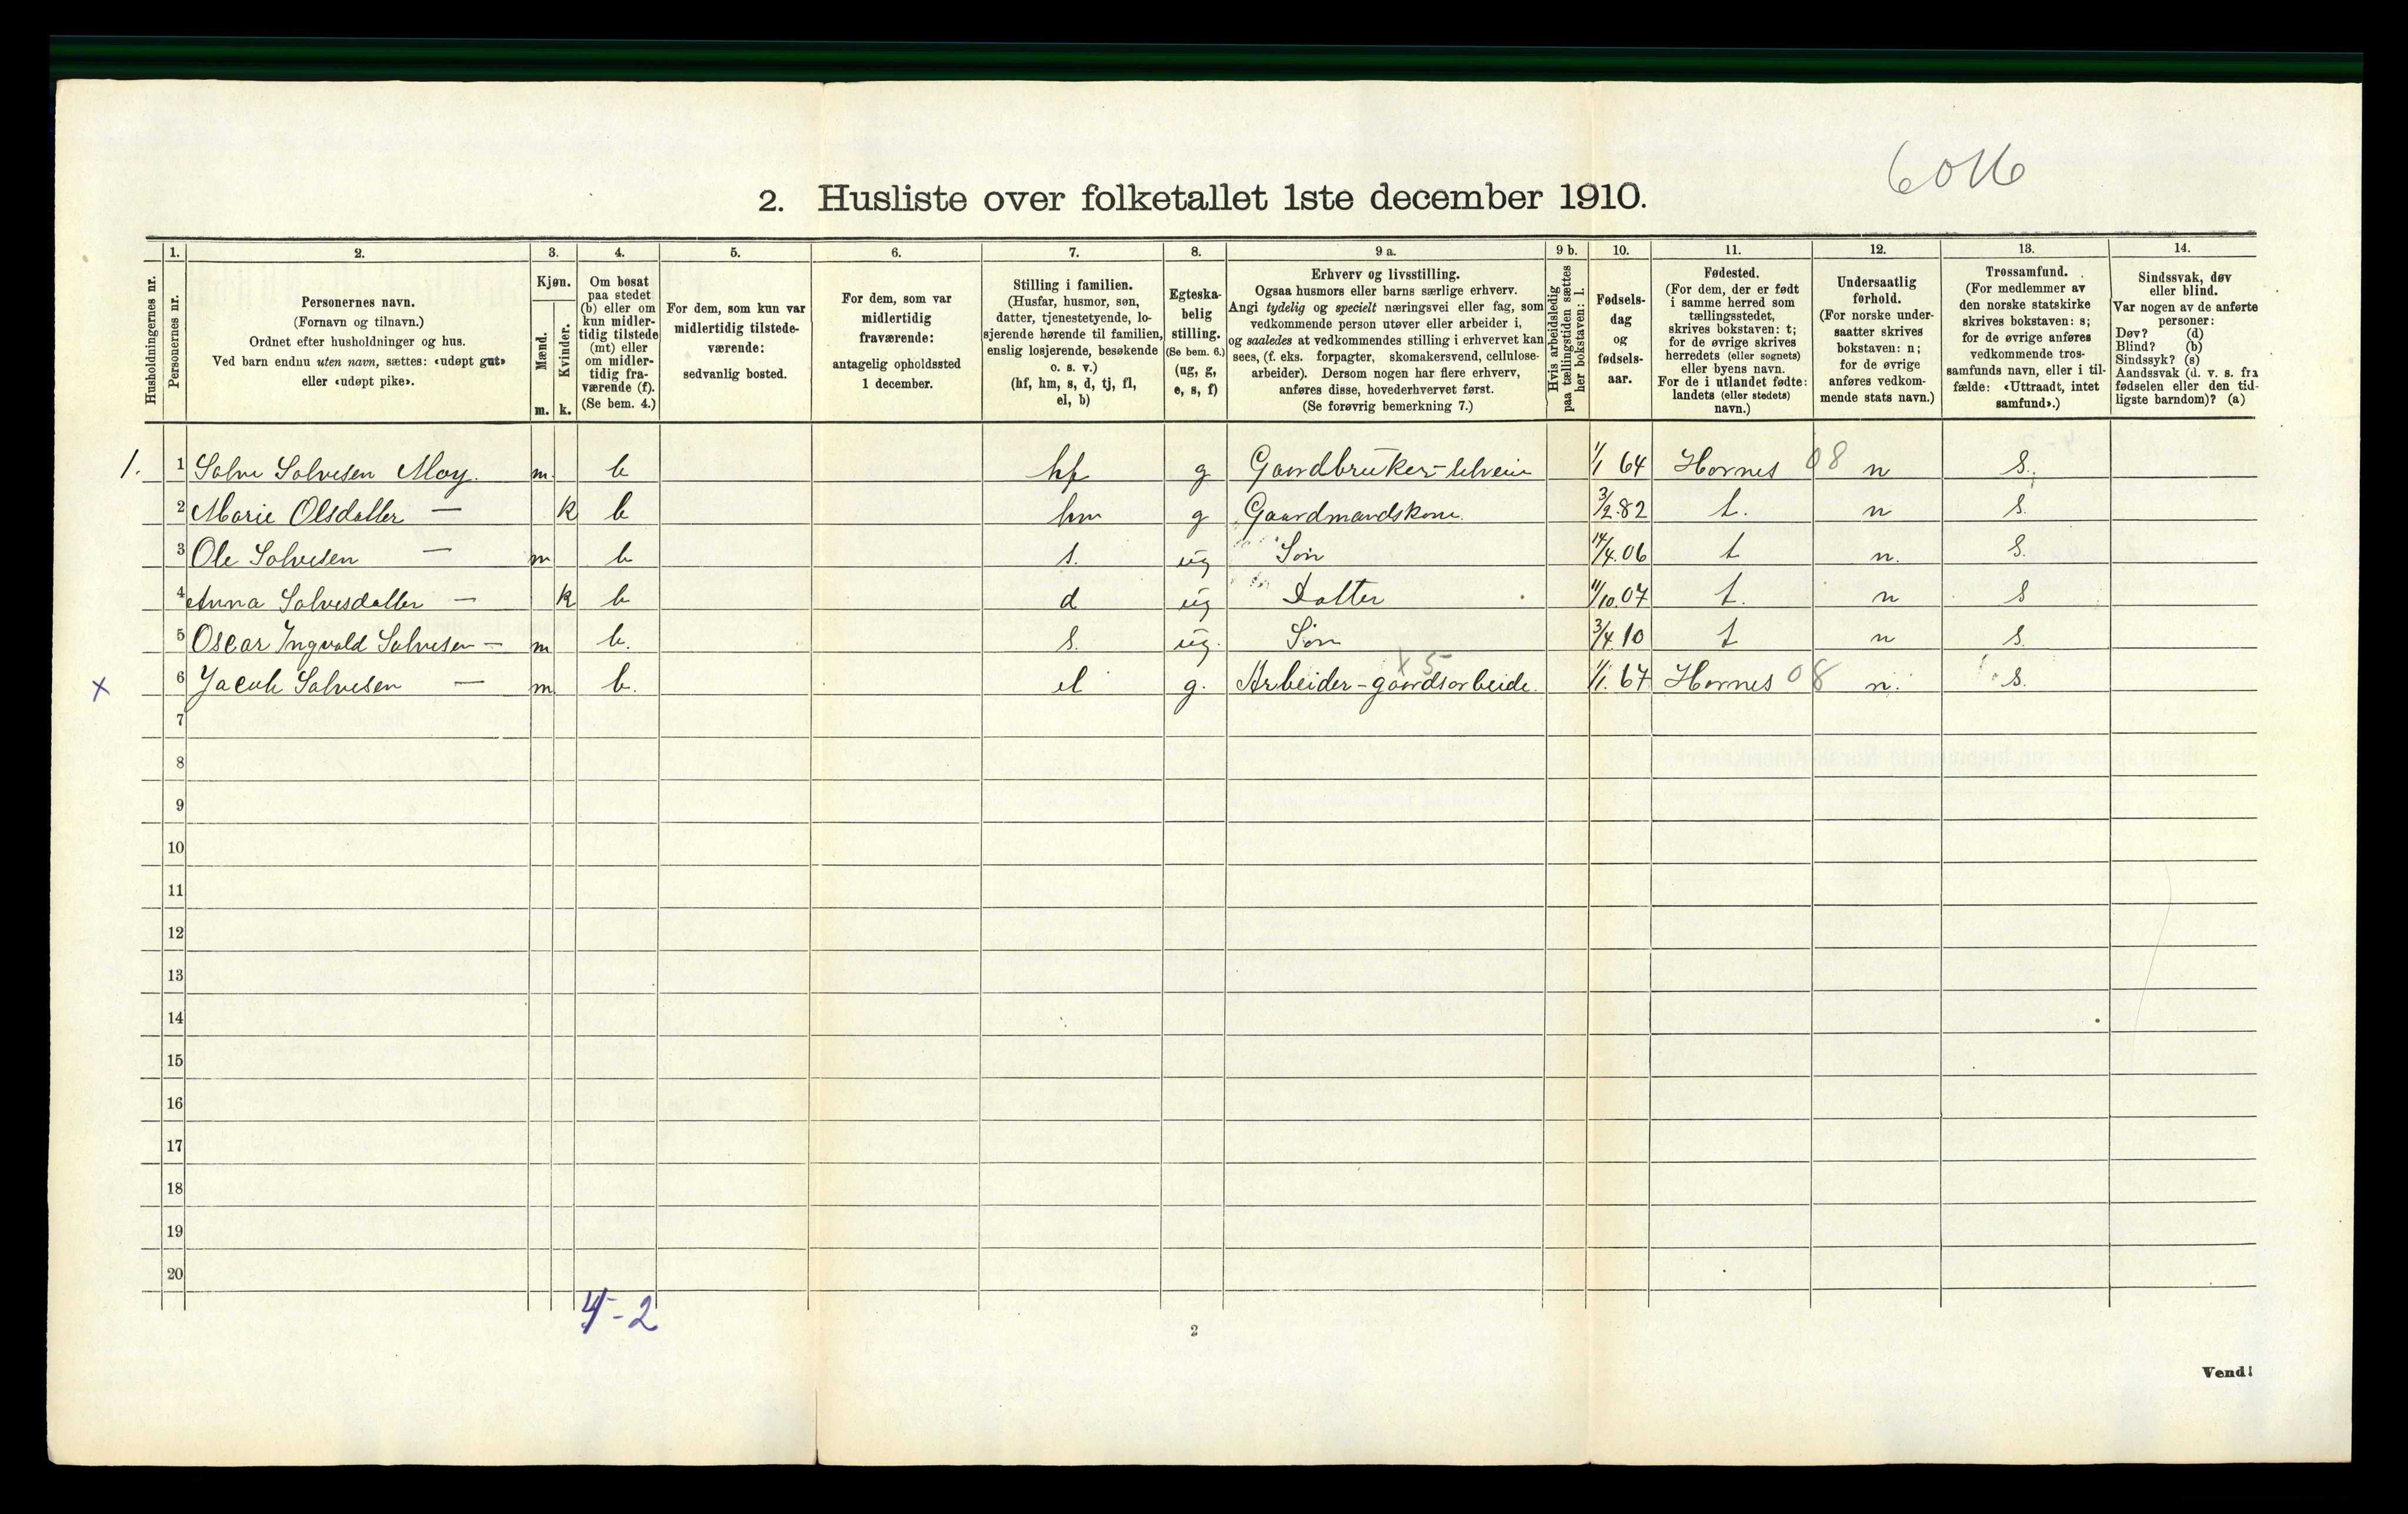 6016
2. Husliste over folketallet 1ste december 1910.
Husholdningernes nr.
1.
Personernes nr.
2.
Personernes navn.
(Fornavn og tilnavn.)
Ordnet efter husholdninger og hus.
Ved barn endnu uten navn, sættes: «udøpt gut»
eller «udøpt pike».
3.
Kjøn.
Mænd.
Kvinder.
m. k.
4.
Om bosat
paa stedet
(b) eller om
kun midler-
tidig tilstede
(mt) eller
om midler-
tidig fra-
værende (f).
(Se bem. 4.)
5.
For dem, som kun var
midlertidig tilstede-
værende:
sedvanlig bosted.
6.
For dem, som var
midlertidig
fraværende:
antagelig opholdssted
1 december.
7.
Stilling i familien.
(Husfar, husmor, søn,
datter, tjenestetyende, lo-
sjerende hørende til familien,
enslig losjerende, besøkende
o. s. v.)
(hf, hm, s, d, tj, fl,
el, b)
8.
Egteska-
belig
stilling.
(Se bem. 6.)
(ug, g,
e, s, f)
9 a.
Erhverv og livsstilling.
Ogsaa husmors eller barns særlige erhverv.
Angi tydelig og specielt næringsvei eller fag, som
vedkommende person utøver eller arbeider i,
og saaledes at vedkommendes stilling i erhvervet kan
sees, (f. eks. forpagter, skomakersvend, cellulose-
arbeider). Dersom nogen har flere erhverv,
anføres disse, hovederhvervet først.
(Se forøvrig bemerkning 7.)
9 b.
Hvis arbeidsledig
paa tællingstiden sættes
her bokstaven: l.
10.
Fødsels-
dag
og
fødsels-
aar.
11.
Fødested.
(For dem, der er født
i samme herred som
tællingsstedet,
skrives bokstaven: t;
for de øvrige skrives
herredets (eller sognets)
eller byens navn.
For de i utlandet fødte:
landets (eller stedets)
navn.)
12.
Undersaatlig
forhold.
(For norske under-
saatter skrives
bokstaven: n;
for de øvrige
anføres vedkom-
mende stats navn.)
13.
Trossamfund.
(For medlemmer av
den norske statskirke
skrives bokstaven: s;
for de øvrige anføres
vedkommende tros-
samfunds navn, eller i til-
fælde: «Uttraadt, intet
samfund».)
14.
Sindssvak, døv
eller blind.
Var nogen av de anførte
personer:
Døv? (d)
Blind? (b)
Sindssyk? (s)
Aandssvak (d. v. s. fra
fødselen eller den tid-
ligste barndom)? (a)
1. 1 Salve Salvesen Moy. m. b hf g Gaardbruker- 1/1 64 Hornes 08 n S.
2 Marie Olsdatter — k b hm g Gaardmandskone. 3/2 82 t. n S.
3 Ole Salvesen — m b s. ug Søn 14/4.06 t n. S.
4 Anna Salvesdatter — k b d ug Datter 11/10.07 t. n S
5 Oscar Ingvald Salvesen — m b. s. ug. Søn 3/4 10 t n S.
x 5
x 6 Jacob Salvesen — m. b. el g. Arbeider-gaardsarbeide. 1/1. 67 Hornes 08 n. S.
7
8
9
10
11
12
13
14
15
16
17
18
19
20
4-2
2
Vend!